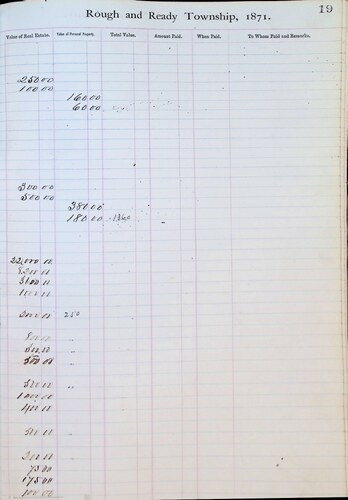 Rough and Ready Township, 1871. 19
Value of Real Estate. Value of Personal Property. Total Value. Amount Paid. When Paid. To Whom Paid and Remarks.
250 00
100 00
160 00
60 00
300 00
500 00
380 00
180 00 1360
22,000 00
5100 00
1000 00
200 00 250
800 00
500 00
500 00
1000 00
400 00
500 00
200 00
75 00
175 00
100 00